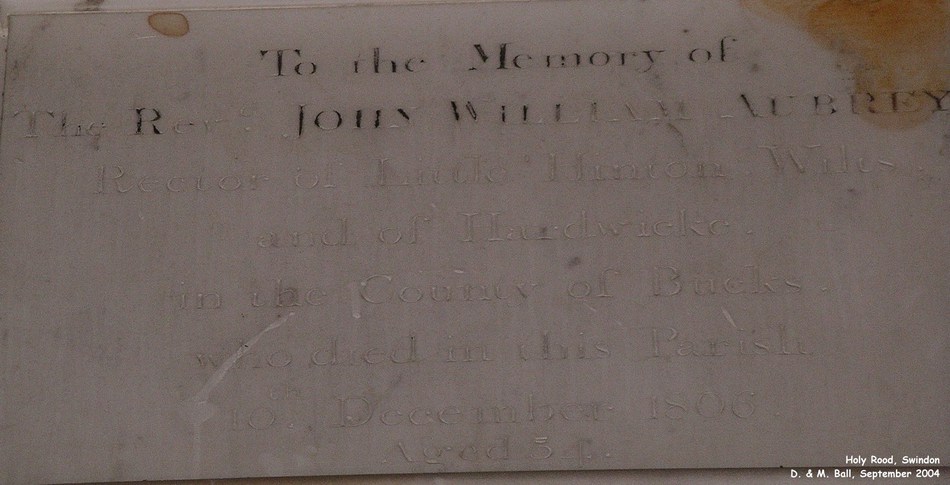 To the Memory of
The Rev.d JOHN WILLIAM AUBREY
Rector of Little Hinton, Wilts
and of Hardwicke.
in the County of Bucks.
who died in this Parish
10th. December 1806.
Aged 54.
Holy Rood, Swindon
D. & M. Ball, September 2004